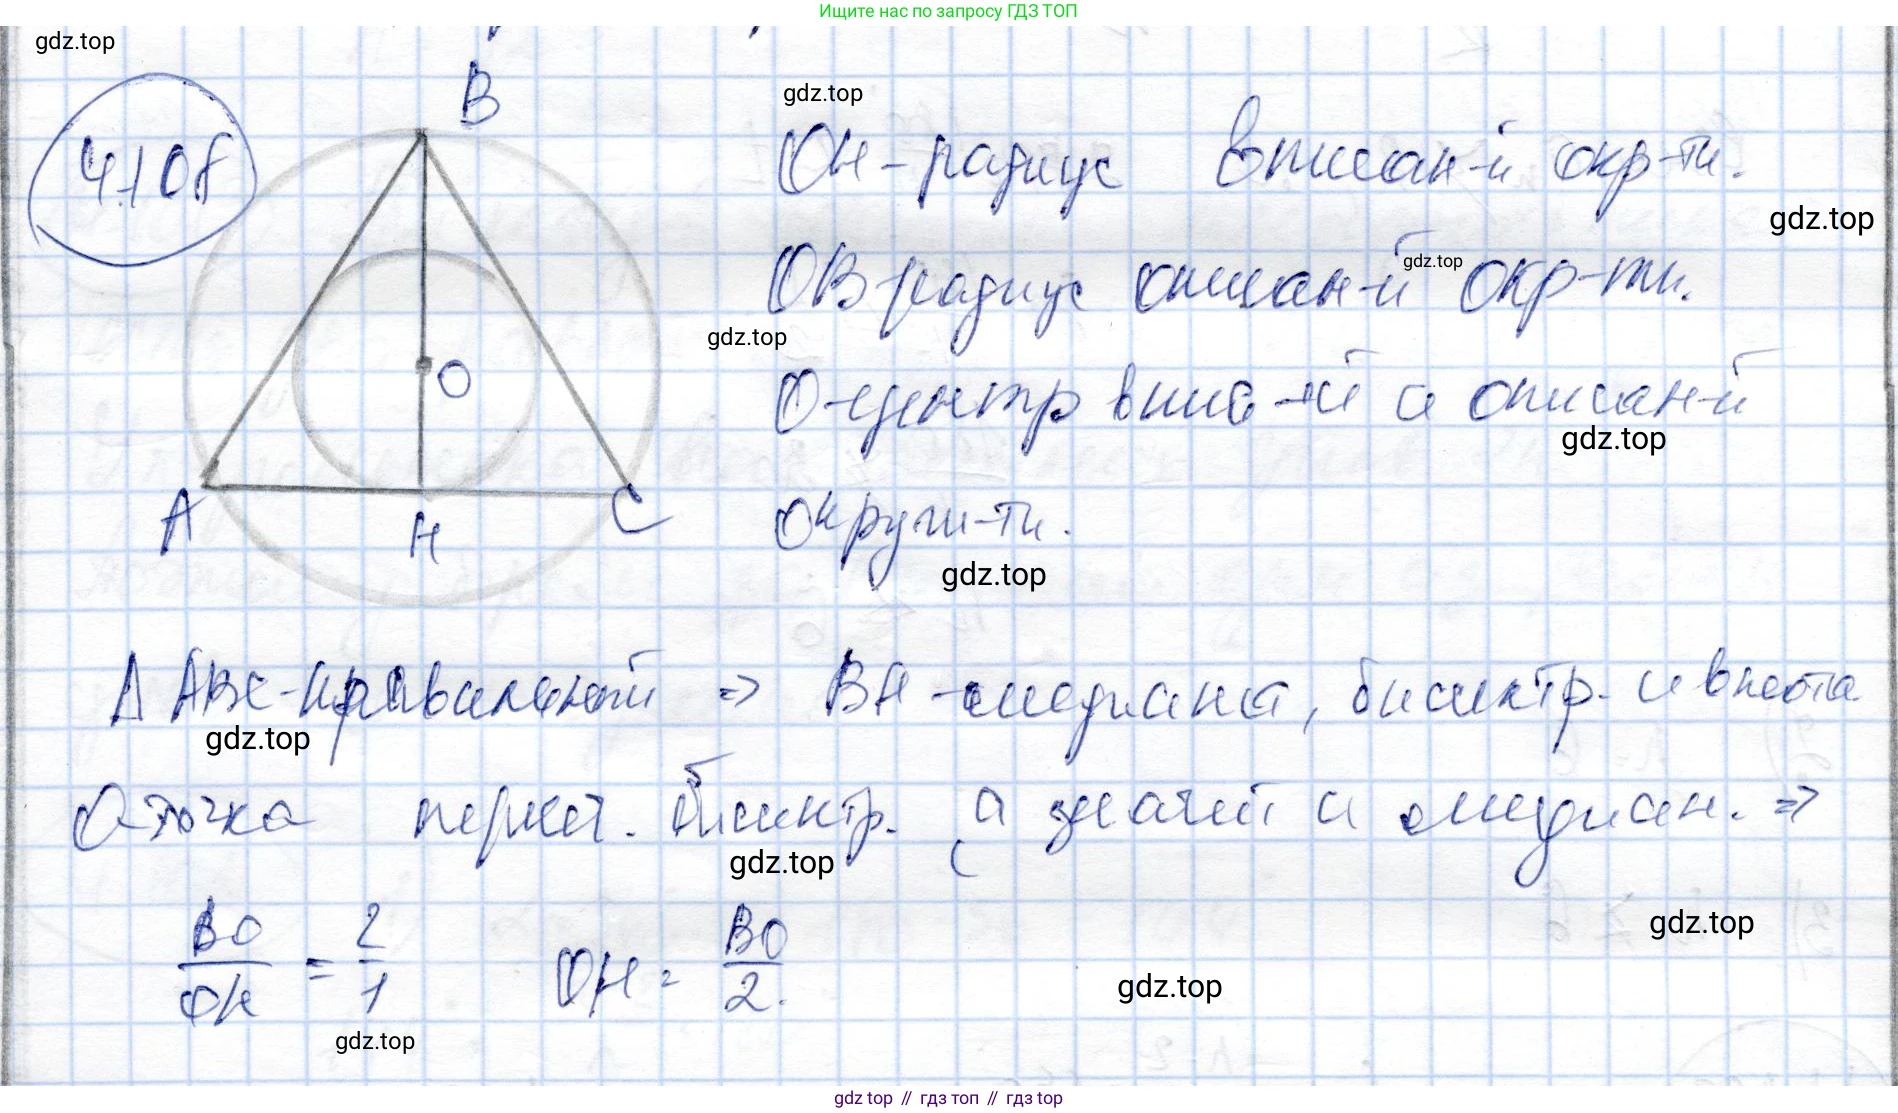 Ищите нас по запросу ГДЗ ТОП
gdz.top
4.108
B
gdz.top
OH - радиус вписан-й окр-ти.
gdz.top
OB - радиус описан-й окр-ти.
gdz.top
gdz.top
O
O - центр впис-й и описан-й
gdz.top
A
H
C
окруж-ти.
gdz.top
Δ ABC - правильный => BH - медиана, биссектр. и высота
gdz.top
O - точка перес. биссектр., а значит и медиан. =>
gdz.top
BO/OH = 2/1 OH = BO/2.
gdz.top
gdz.top
gdz.top
gdz top // гдз топ // гдз top